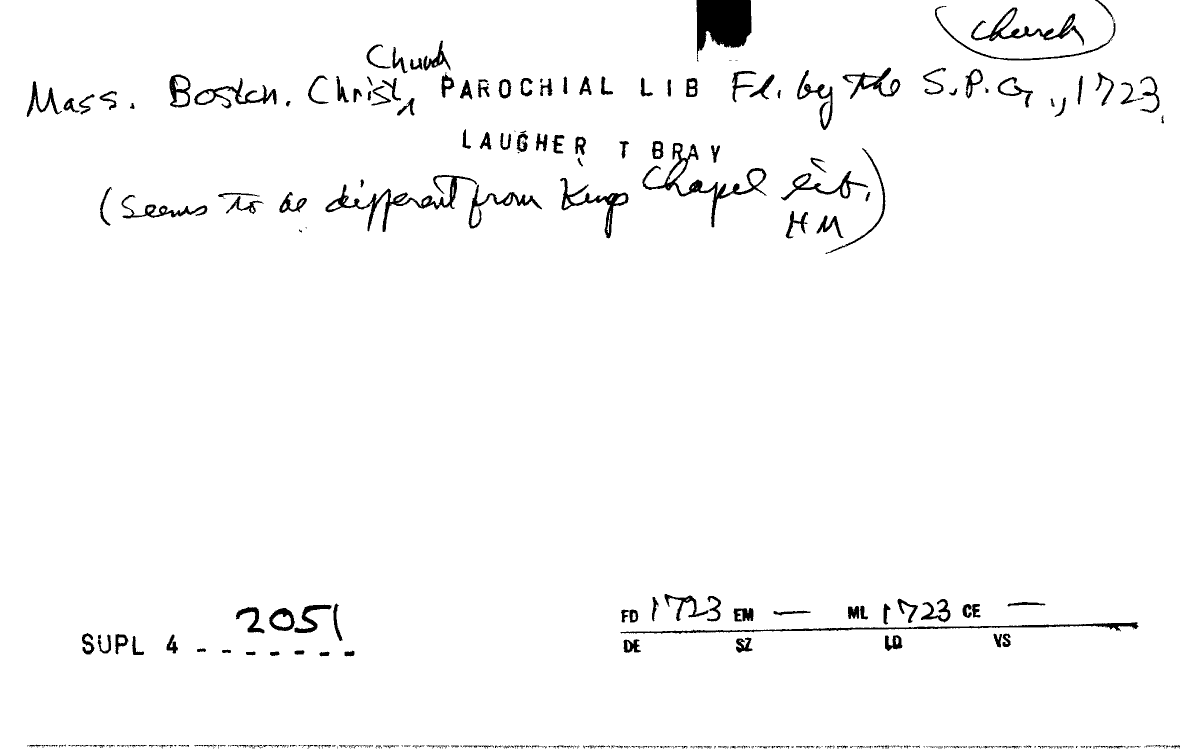 church
Mass. Boston. Christ Church PAROCHIAL LIB Fd. by the S.P.G., 1723
LAUGHER T BRAY
(Seems to be different from Kings Chapel lib.
HM)
2051
SUPL 4 - - - - - - -
FD 1723 EM — ML 1723 CE —
DE SZ LQ VS